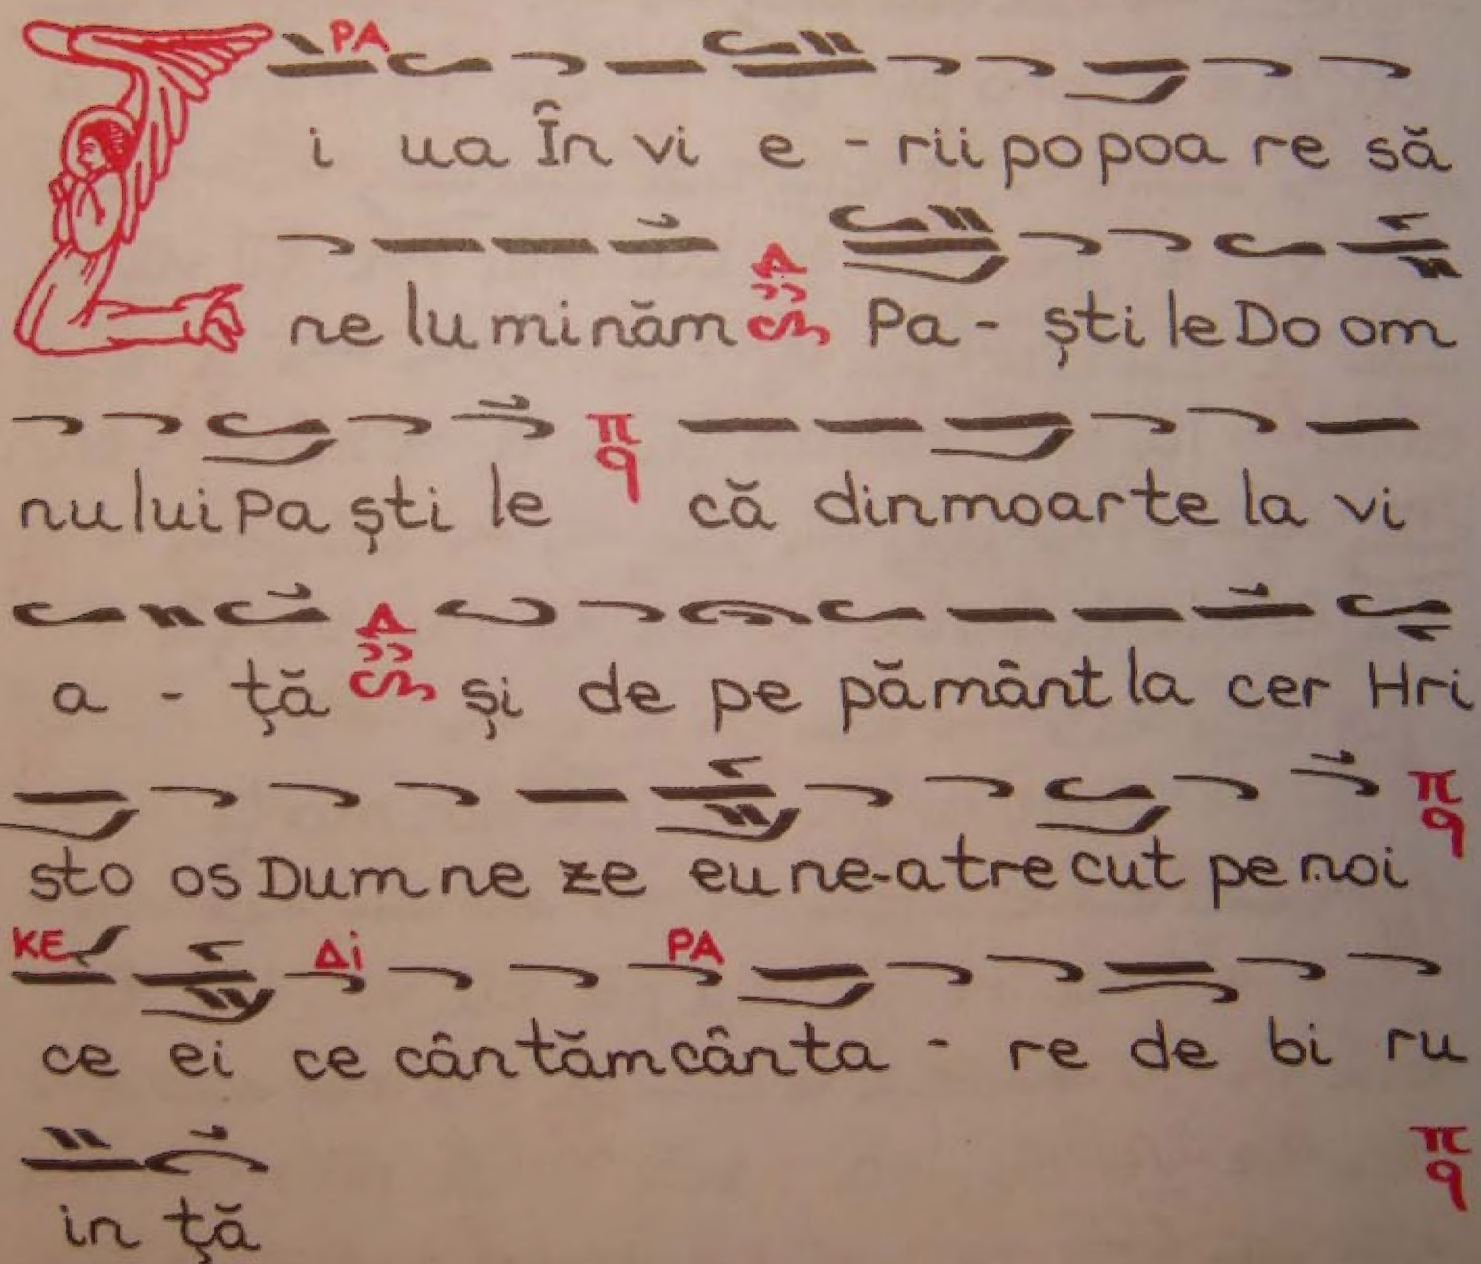 PA
Zi ua În vi e - rii po poa re să
ne lu mi năm Δ Pa - ști le Do om
nu lui Pa ști le π q că din moar te la vi
a - ță Δ și de pe pământ la cer Hri
sto os Dum ne ze eu ne-a tre cut pe noi π q
KE Δi PA
ce ei ce cântăm cânta - re de bi ru
in ță π q